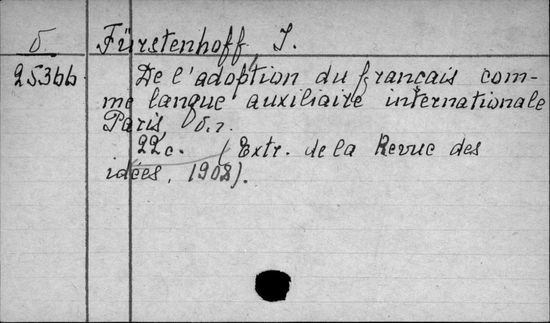 б Fürstenhoff, J.
25366 De l'adoption du français com-
me langue auxiliaire internationale
Paris, б.г.
22 с. (Extr. de la Revue des
idées, 1908).